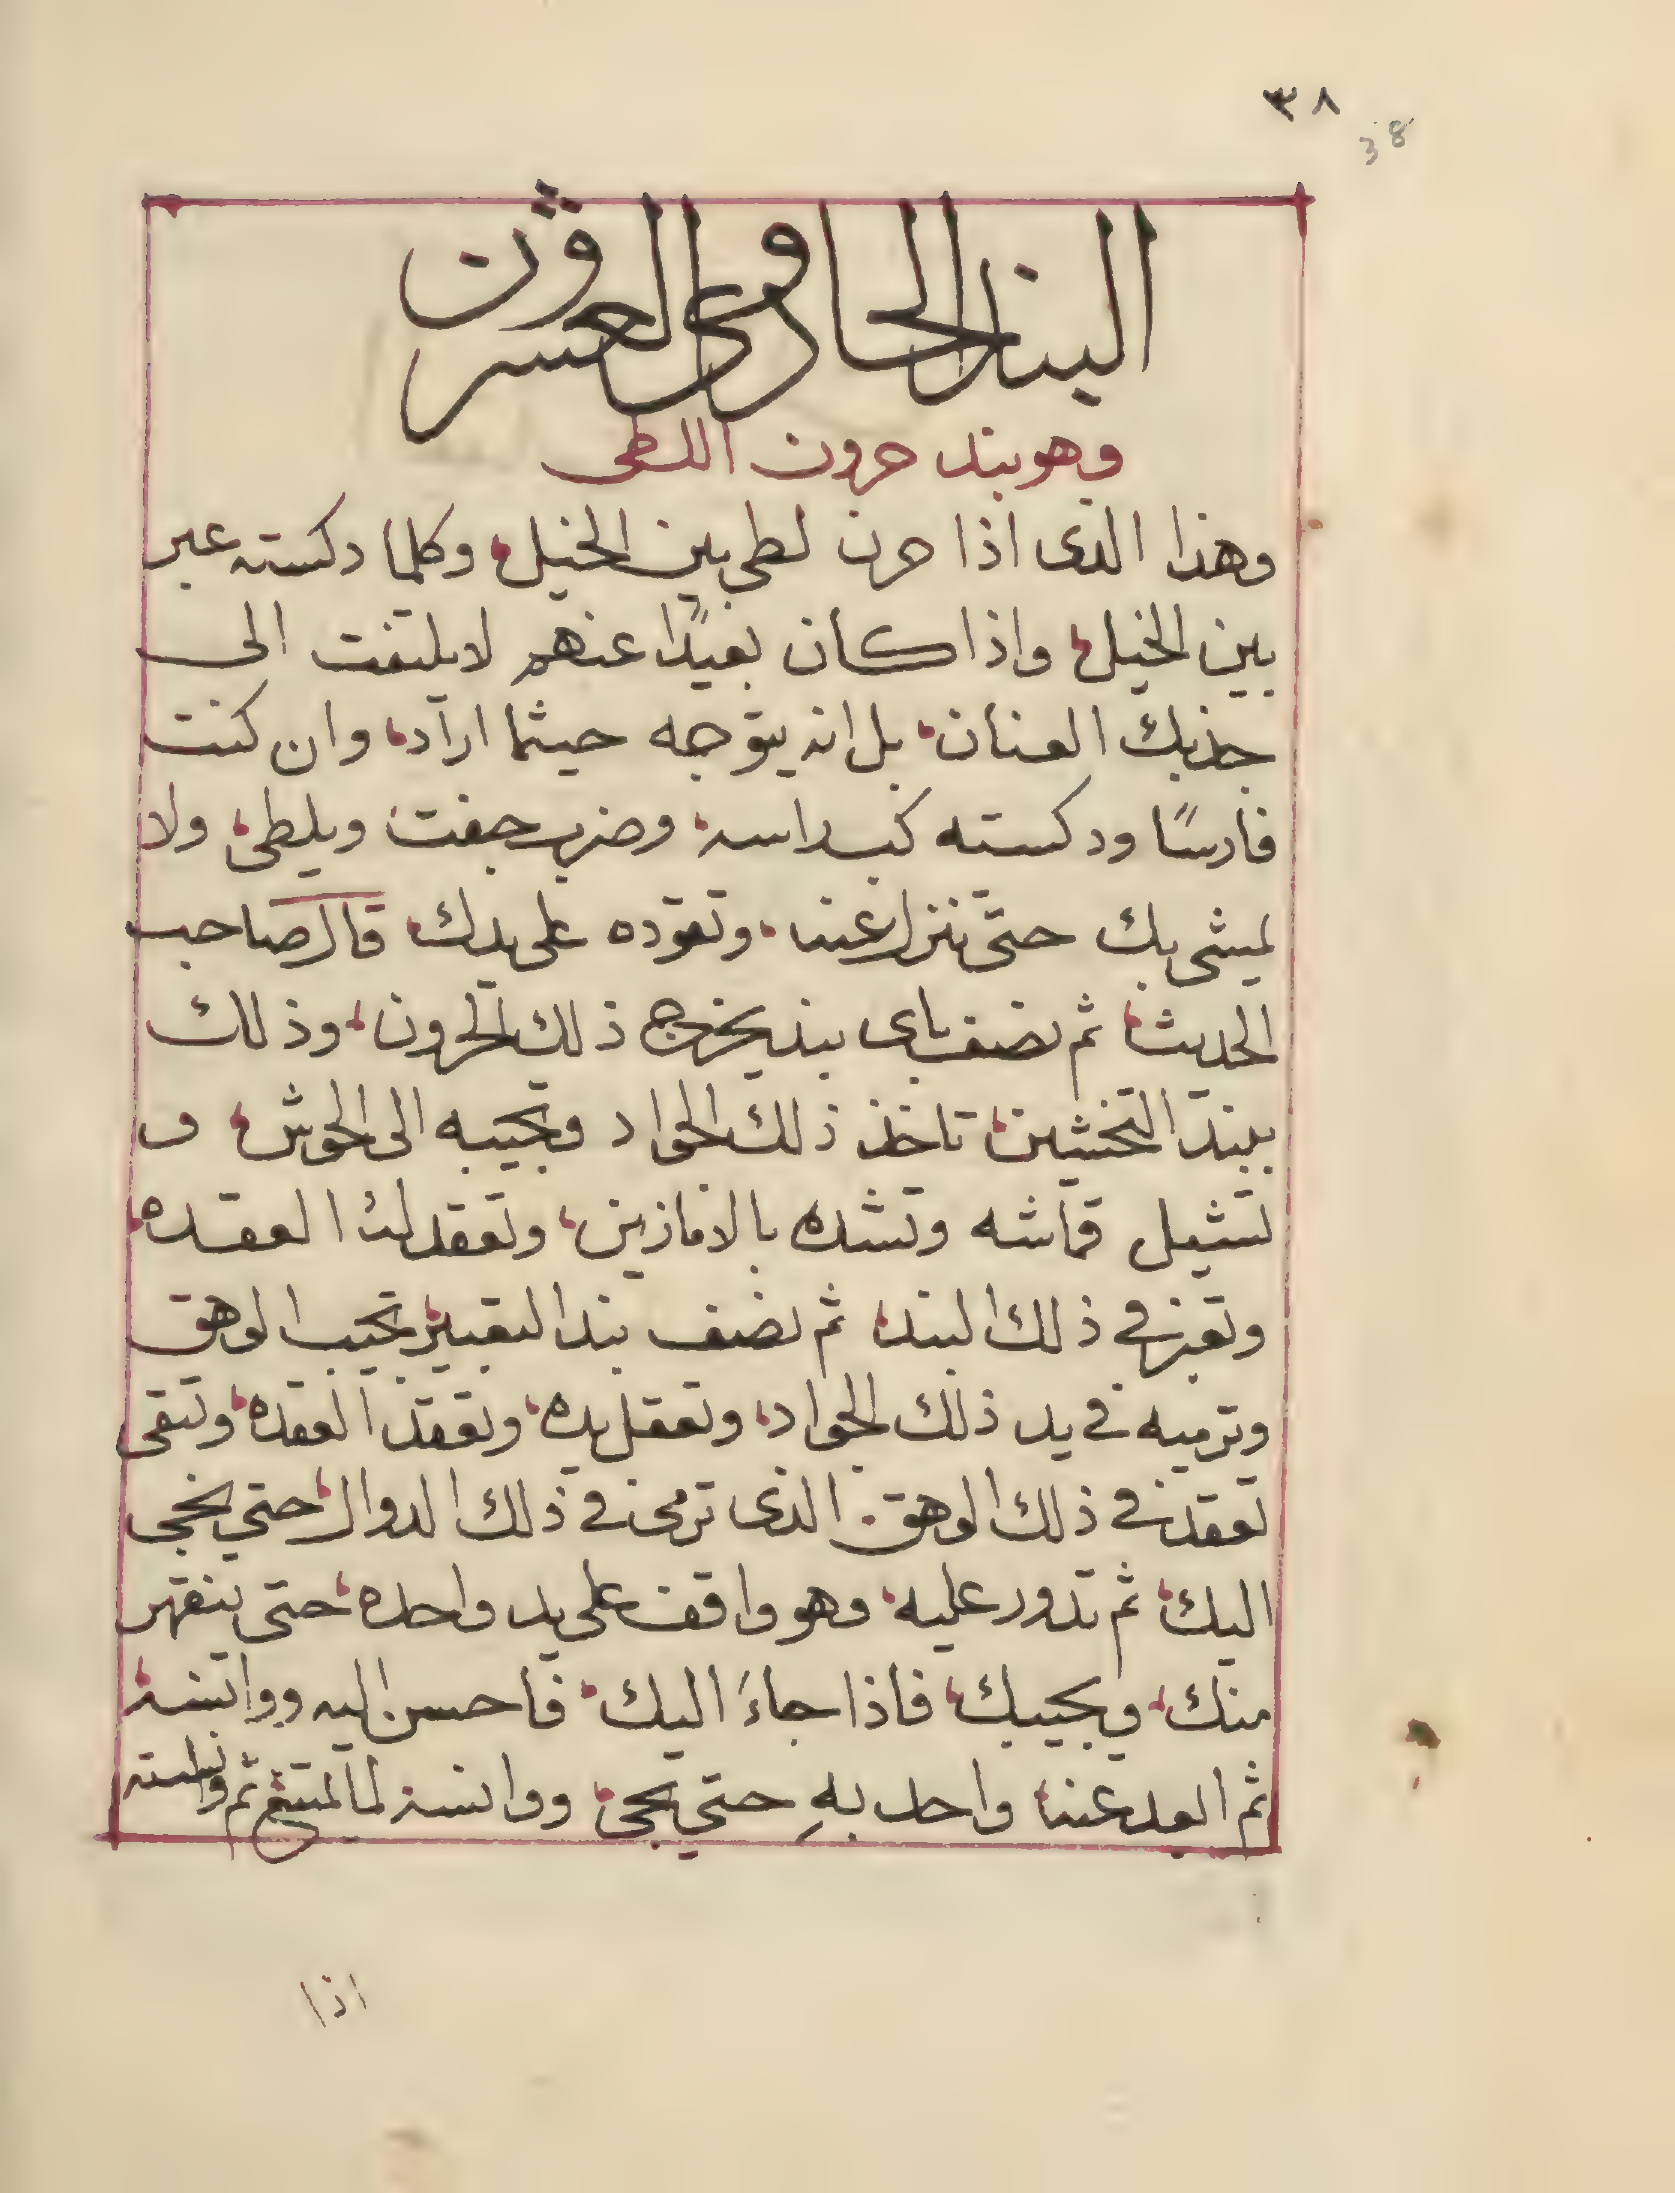 ٣٨
38
البند الحادى والعشرون
وهو بند حرون اللطى
وهذا الذى اذا حرن لطى بين الخيل، وكلما دكسته عبر
بين الخيل، واذا كان بعيدًا عنهم لا يلتفت الى
جذبك العنان، بل انه يتوجه حيثما اراد، وان كنت
فارسًا ودكسته كب راسه، وضرب جفت ويلطى، ولا
يمشى بك حتى تنزل عنه، وتقوده على يدك، قال صاحب
الحديث، ثم نصف باى بند يخرج ذلك الحرون، وذلك
ببند التخشين، تاخذ ذلك الجواد وتجيبه الى الحوش، و
تشيل قماشه وتشده بالدمازين، وتعقد له العقده،
وتعبر فى ذلك البند، ثم نصف بند التعبير، تجيب الوهق
وترميه فى يد ذلك الجواد، وتعقل يده، وتعقد العقده، وتبقى
تعقد فى ذلك الوهق. الذى ترمى فى ذلك الدوال، حتى يجى
اليك، ثم تدور عليه، وهو واقف على يد واحده، حتى ينقهر
منك، ويجيبك، فاذا جاءَ اليك، فاحسن اليه ووانسه،
ثم ابعد عنه، واحد بهِ حتى يجى، ووانسه لما ثم
اذا